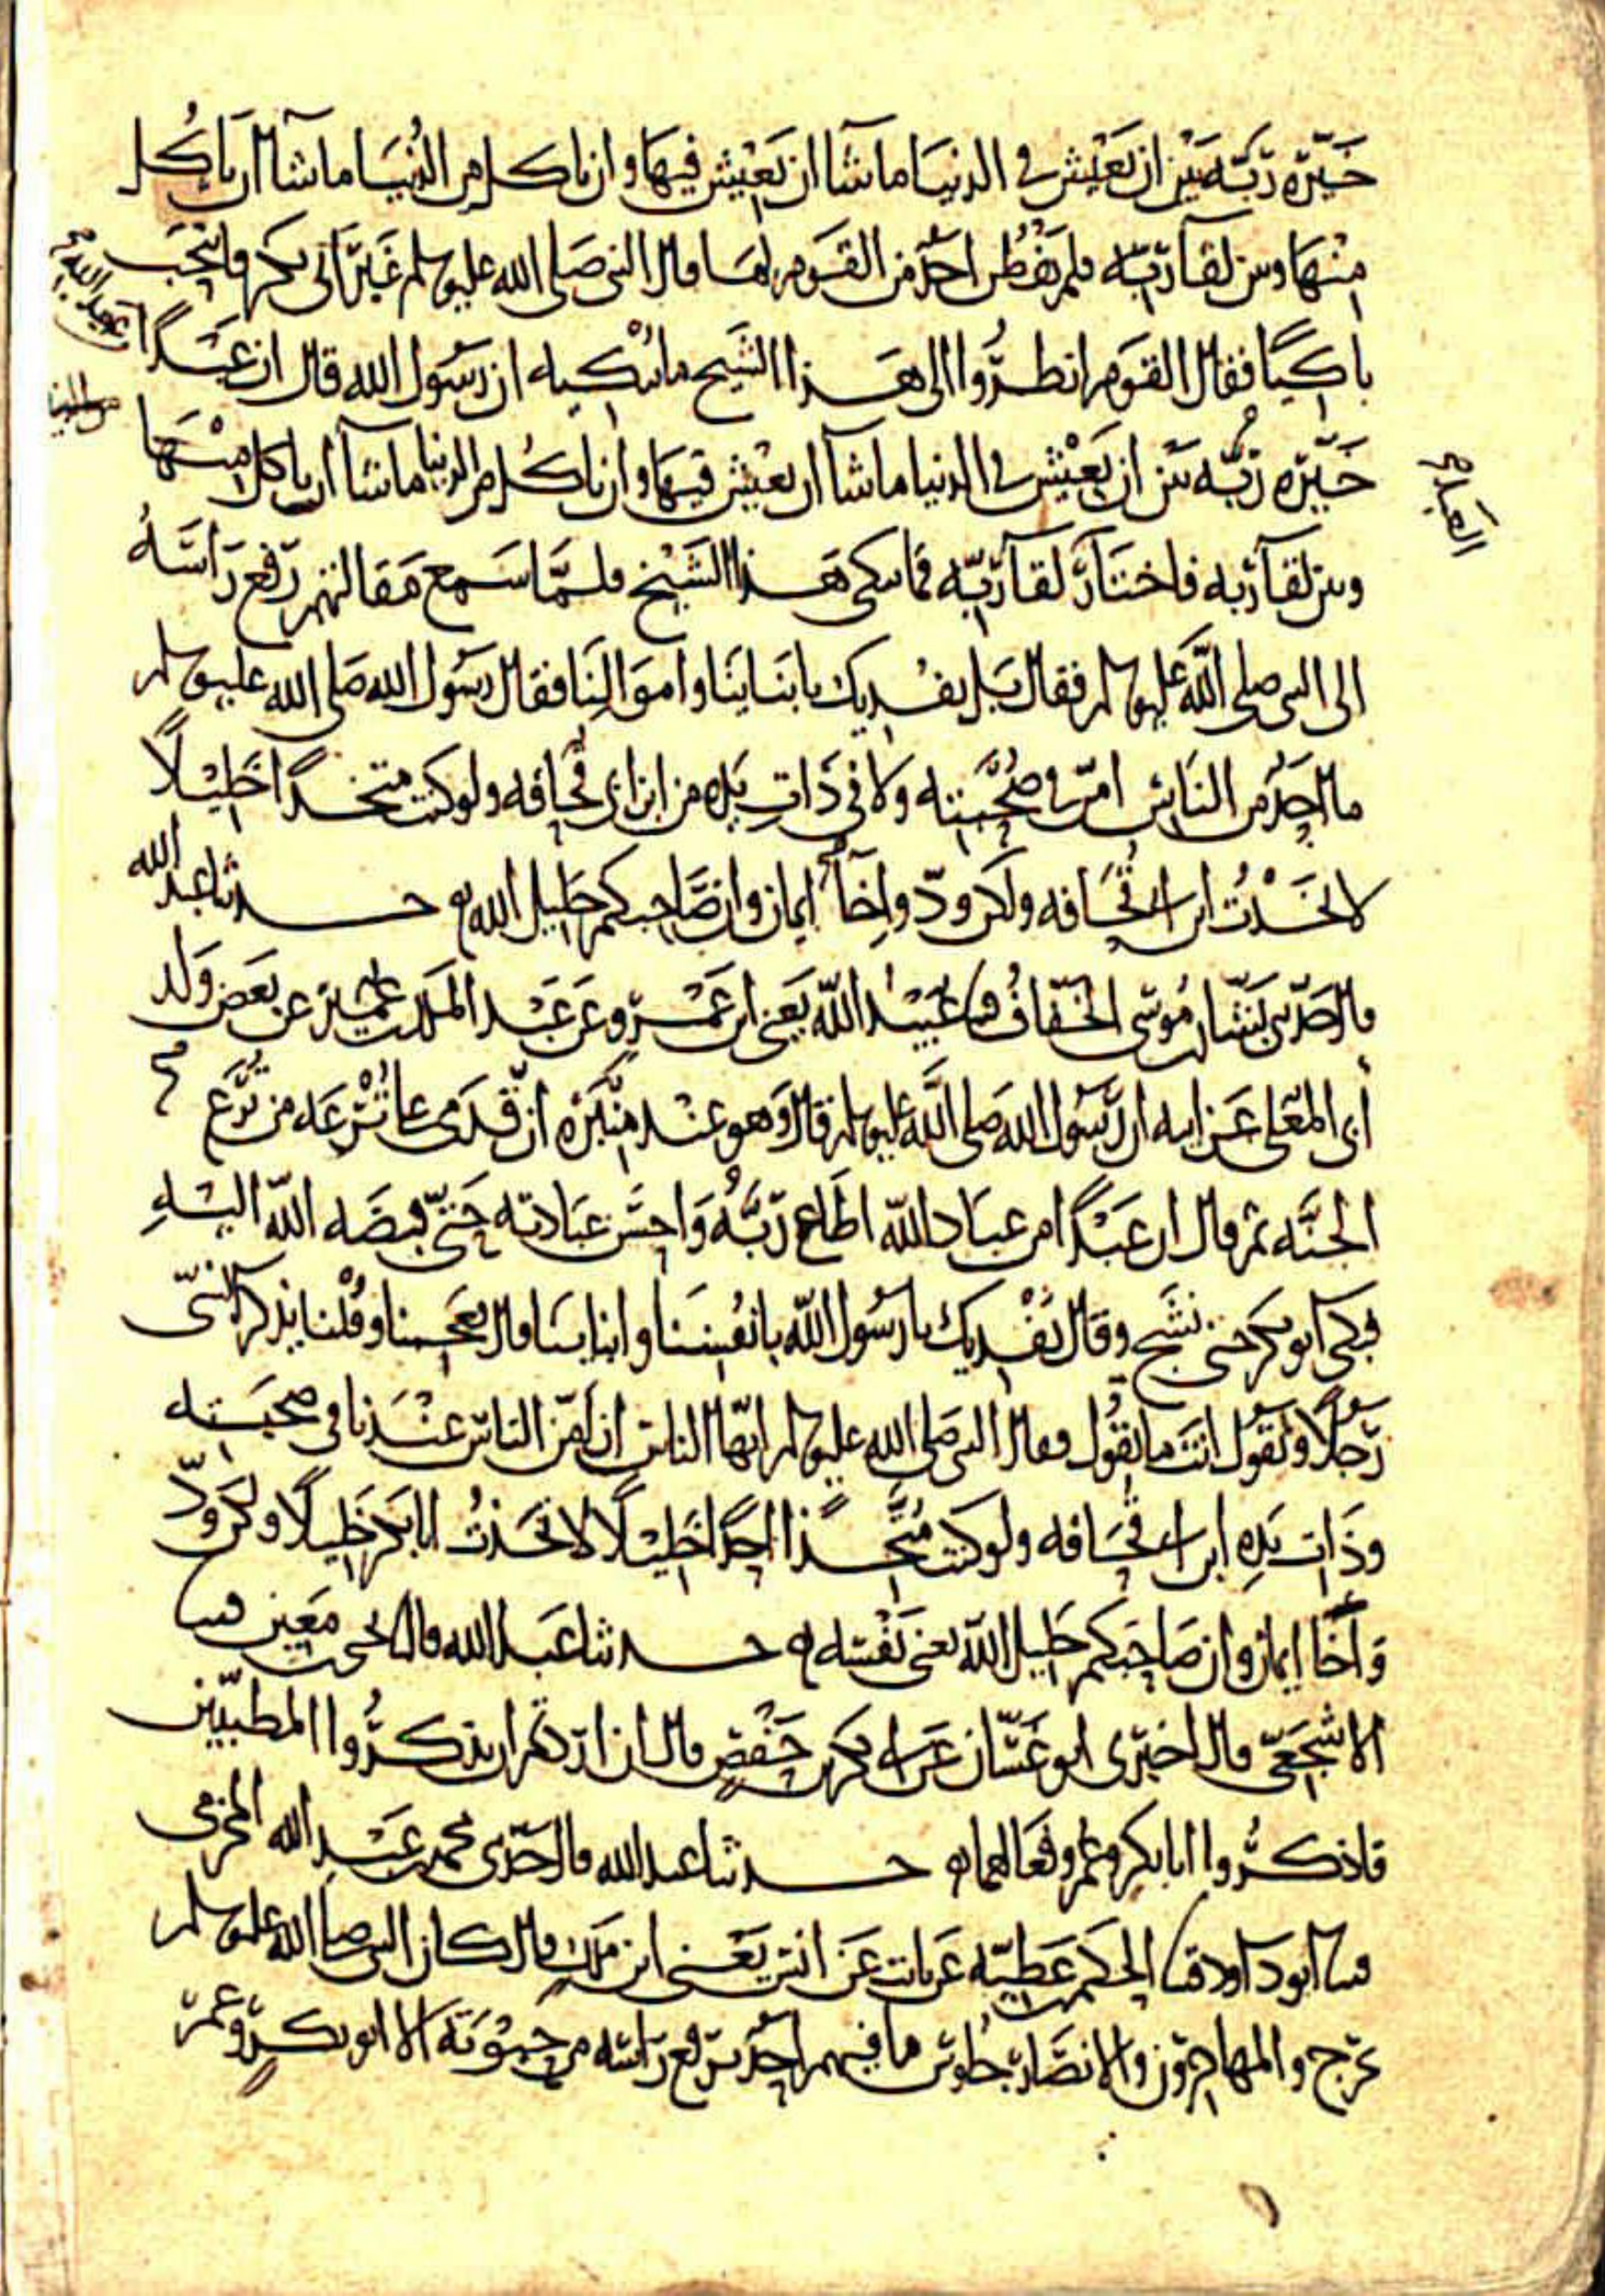 خيّره ربّه بين ان يعيش في الدنيا ما شا ان يعيش فيها وان ياكل من الدنيا ما شا ان ياكل
منها وبين لقا ربّه فلم يفطن احد من القوم لما قال النبي صلى الله عليه وسلم غير ابي بكر فانتحب
باكيا فقال القوم انظروا الى هذا الشيخ ما يبكيه ان رسول الله قال ان عبدا
خيّره ربّه بين ان يعيش في الدنيا ما شا ان يعيش فيها وان ياكل من الدنيا ما شا ان ياكل منها
وبين لقا ربه فاختار لقا ربّه فما يبكي هذا الشيخ فلمّا سمع مقالتهم رفع راسه
الى النبي صلى الله عليه وسلم فقال بل نفديك بابناينا واموالنا فقال رسول الله صلى الله عليه وسلم
ما احد من الناس امنّ في صحبته ولا في ذات يده من ابن ابي قحافه ولو كنت متخذا خليلا
لاتخذت ابن ابي قحافه ولكن ودّ واخا ايمان وان صاحبكم خليل الله حدثنا عبد الله
قال حدّثني بشار بن موسى الخفّاف قثنا عبيد الله يعني ابن عمرو عن عبد الملك بن عمير عن بعض ولد
أبي المعلى عن ابيه ان رسول الله صلى الله عليه وسلم قال وهو عند منبره ان قدمي على ترعه من ترع
الجنّه ثم قال ان عبدا من عباد الله اطاع ربّه واحسن عبادته حتى قبضه الله اليه
فبكى ابو بكر حتى نشج وقال نفديك يا رسول الله بانفسنا وابناينا قال فعجبنا وقلنا يذكر النبي
رجلا وتقول انت ما تقول فقال النبي صلى الله عليه وسلم ايّها الناس ان امنّ الناس عندنا في صحبته
وذات يده ابن ابي قحافه ولو كنت متّخذا احدا خليلا لاتخذت ابا بكر خليلا ولكن ودّ
واخا ايمان وان صاحبكم خليل الله يعني نفسه حدثنا عبد الله قال يحيى بن معين قثنا
الاشجعي قال اخبرني ابو غسّان عن ابي بكر بن حفص قال ان اردتم ان تذكروا المطيبين
فاذكروا ابا بكر وعمر وفعالهما حدثنا عبد الله قال حدّثني محمد بن عبد الله المخرمي
قثنا ابو داود قثنا الحكم بن عطيّه عن ثابت عن انس يعني ابن ملك قال كان النبي صلى الله عليه وسلم
يخرج والمهاجرون والانصار جلوس ما فيهم احد يرفع راسه من حبوته الا ابو بكر وعمر